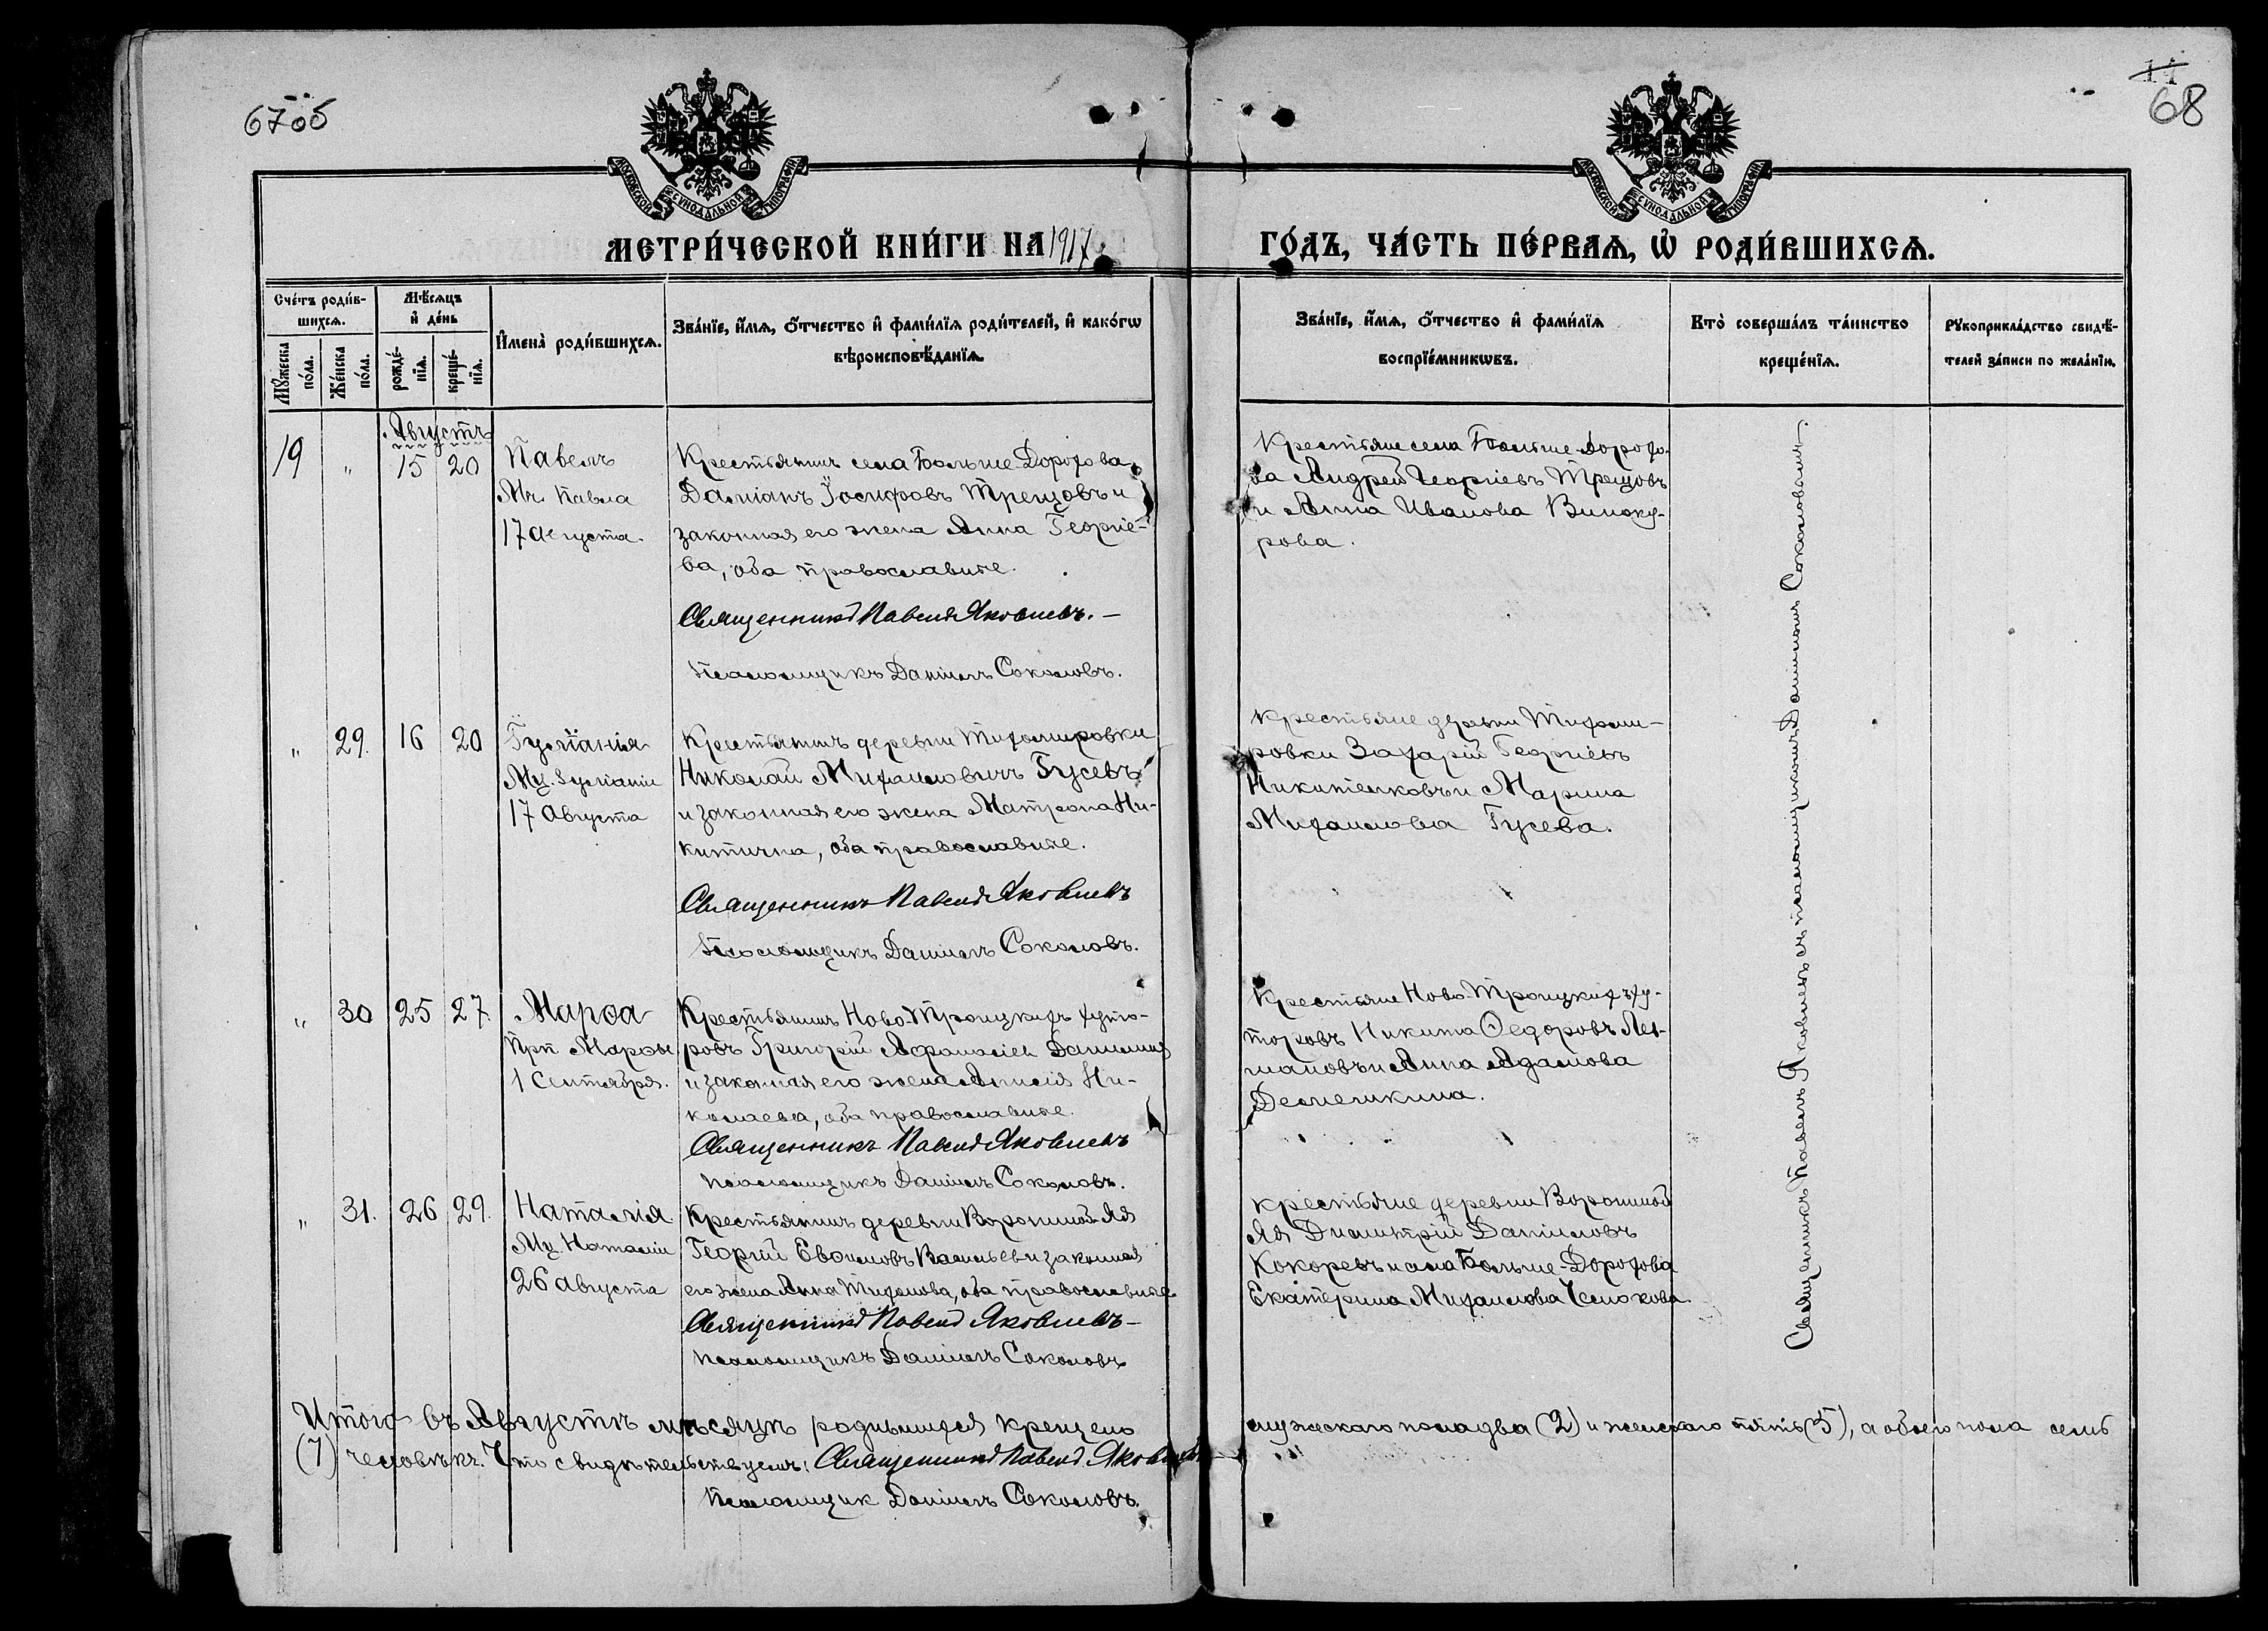 67об
11
68
МОСКОВСКОЙ СУНОДАЛЬНОЙ ТИПОГРАФІИ
МОСКОВСКОЙ СУНОДАЛЬНОЙ ТИПОГРАФІИ
МЕТРИ́ЧЕСКОЙ КНИ́ГИ НА 1917
ГО́ДЪ, ЧА́СТЬ ПЕ́РВАѦ, Ѡ҆ РОДИ́ВШИХСѦ.
Сче́тъ роди́в-
шихсѧ.
Мꙋ́жеска по́ла.
Же́нска по́ла.
Мѣ́сѧцъ
и҆ де́нь
рожде́-
нїѧ.
креще́-
нїѧ.
И҆мена̀ роди́вшихсѧ.
Зва́нїе, и҆́мѧ, ѻ҆́тчество и҆ фами́лїѧ роди́телей, и҆ како́гѡ
вѣроисповѣ́данїѧ.
Зва́нїе, и҆́мѧ, ѻ҆́тчество и҆ фами́лїѧ
воспрїе́мникѡвъ.
Кто̀ соверша́лъ та́инство
креще́нїѧ.
Рꙋкоприкла́дство свидѣ́-
телей за́писи по жела́нїю.
Августъ
19 „ 15 20
Павелъ
Мч. Павла
17 августа.
Крестьянинъ села Больше-Дорохова
Даміанъ Іосифовъ Трещовъ и
законная его жена Анна Георгіе-
ва, оба православные.
Священникъ Павелъ Яковлевъ.—
Псаломщикъ Даніилъ Соколовъ.
Крестьяне села Больше-Дорохо-
ва Андрей Георгіевъ Трещовъ
и Анна Иванова Виноку-
рова.
„ 29. 16 20
Іуліанія
Мц. Іуліаніи
17 августа
Крестьянинъ деревни Тихомировки
Николай Михаиловичъ Гусевъ
и законная его жена Матрона Ни-
китична, оба православные.
Священникъ Павелъ Яковлевъ
Псаломщикъ Даніилъ Соколовъ.
Крестьяне деревни Тихоми-
ровки Захарій Георгіевъ
Никитенковъ и Марина
Михаилова Гусева.
„ 30 25 27
Марѳа
Прп Марѳы
1 Сентября.
Крестьянинъ Ново-Троицкихъ хуто-
ровъ Григорій Аѳанасіев
и законная его жена Анисія Ни-
колаева, оба православные.
Священникъ Павелъ Яковлевъ
Псаломщикъ Даніилъ Соколовъ.
Крестьяне Ново-Троицкихъ ху-
торовъ Никита Ѳедоровъ
и Анна Адамова
„ 31. 26 29.
Наталія
Мц. Наталіи
26 августа
Крестьянинъ деревни Ворониной
Георгій Евѳимовъ Васильевъ и законная
его жена Анна Тихонова, оба православные
Священникъ Павелъ Яковлевъ—
Псаломщикъ Даніилъ Соколовъ
Крестьяне деревни Ворониной
Димитрій Даніиловъ
Кокоревъ и села Больше-Дорохова
Екатерина Михаилова
Священникъ Павелъ Яковлевъ съ псаломщикомъ Даніиломъ Соколовымъ.
Итого въ Августѣ мѣсяцѣ родившихся крещено мужескаго пола два (2) и женскаго пять (5), а обоего пола семь
(7) человѣкъ. Что свидѣтельствуемъ: Священникъ Павелъ Яковлевъ
Псаломщик Даніилъ Соколовъ.